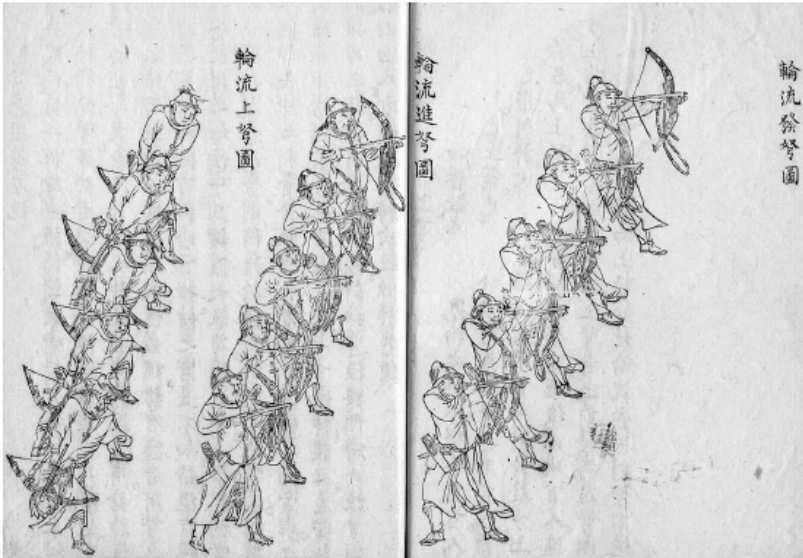 輪流發弩圖
輪流進弩圖
輪流上弩圖